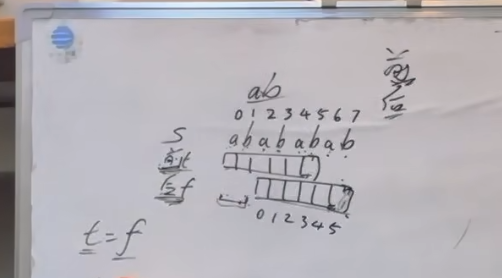 ab
0 1 2 3 4 5 6 7
s a b a b a b a b
前 t
后 f
0 1 2 3 4 5
t = f
前
后